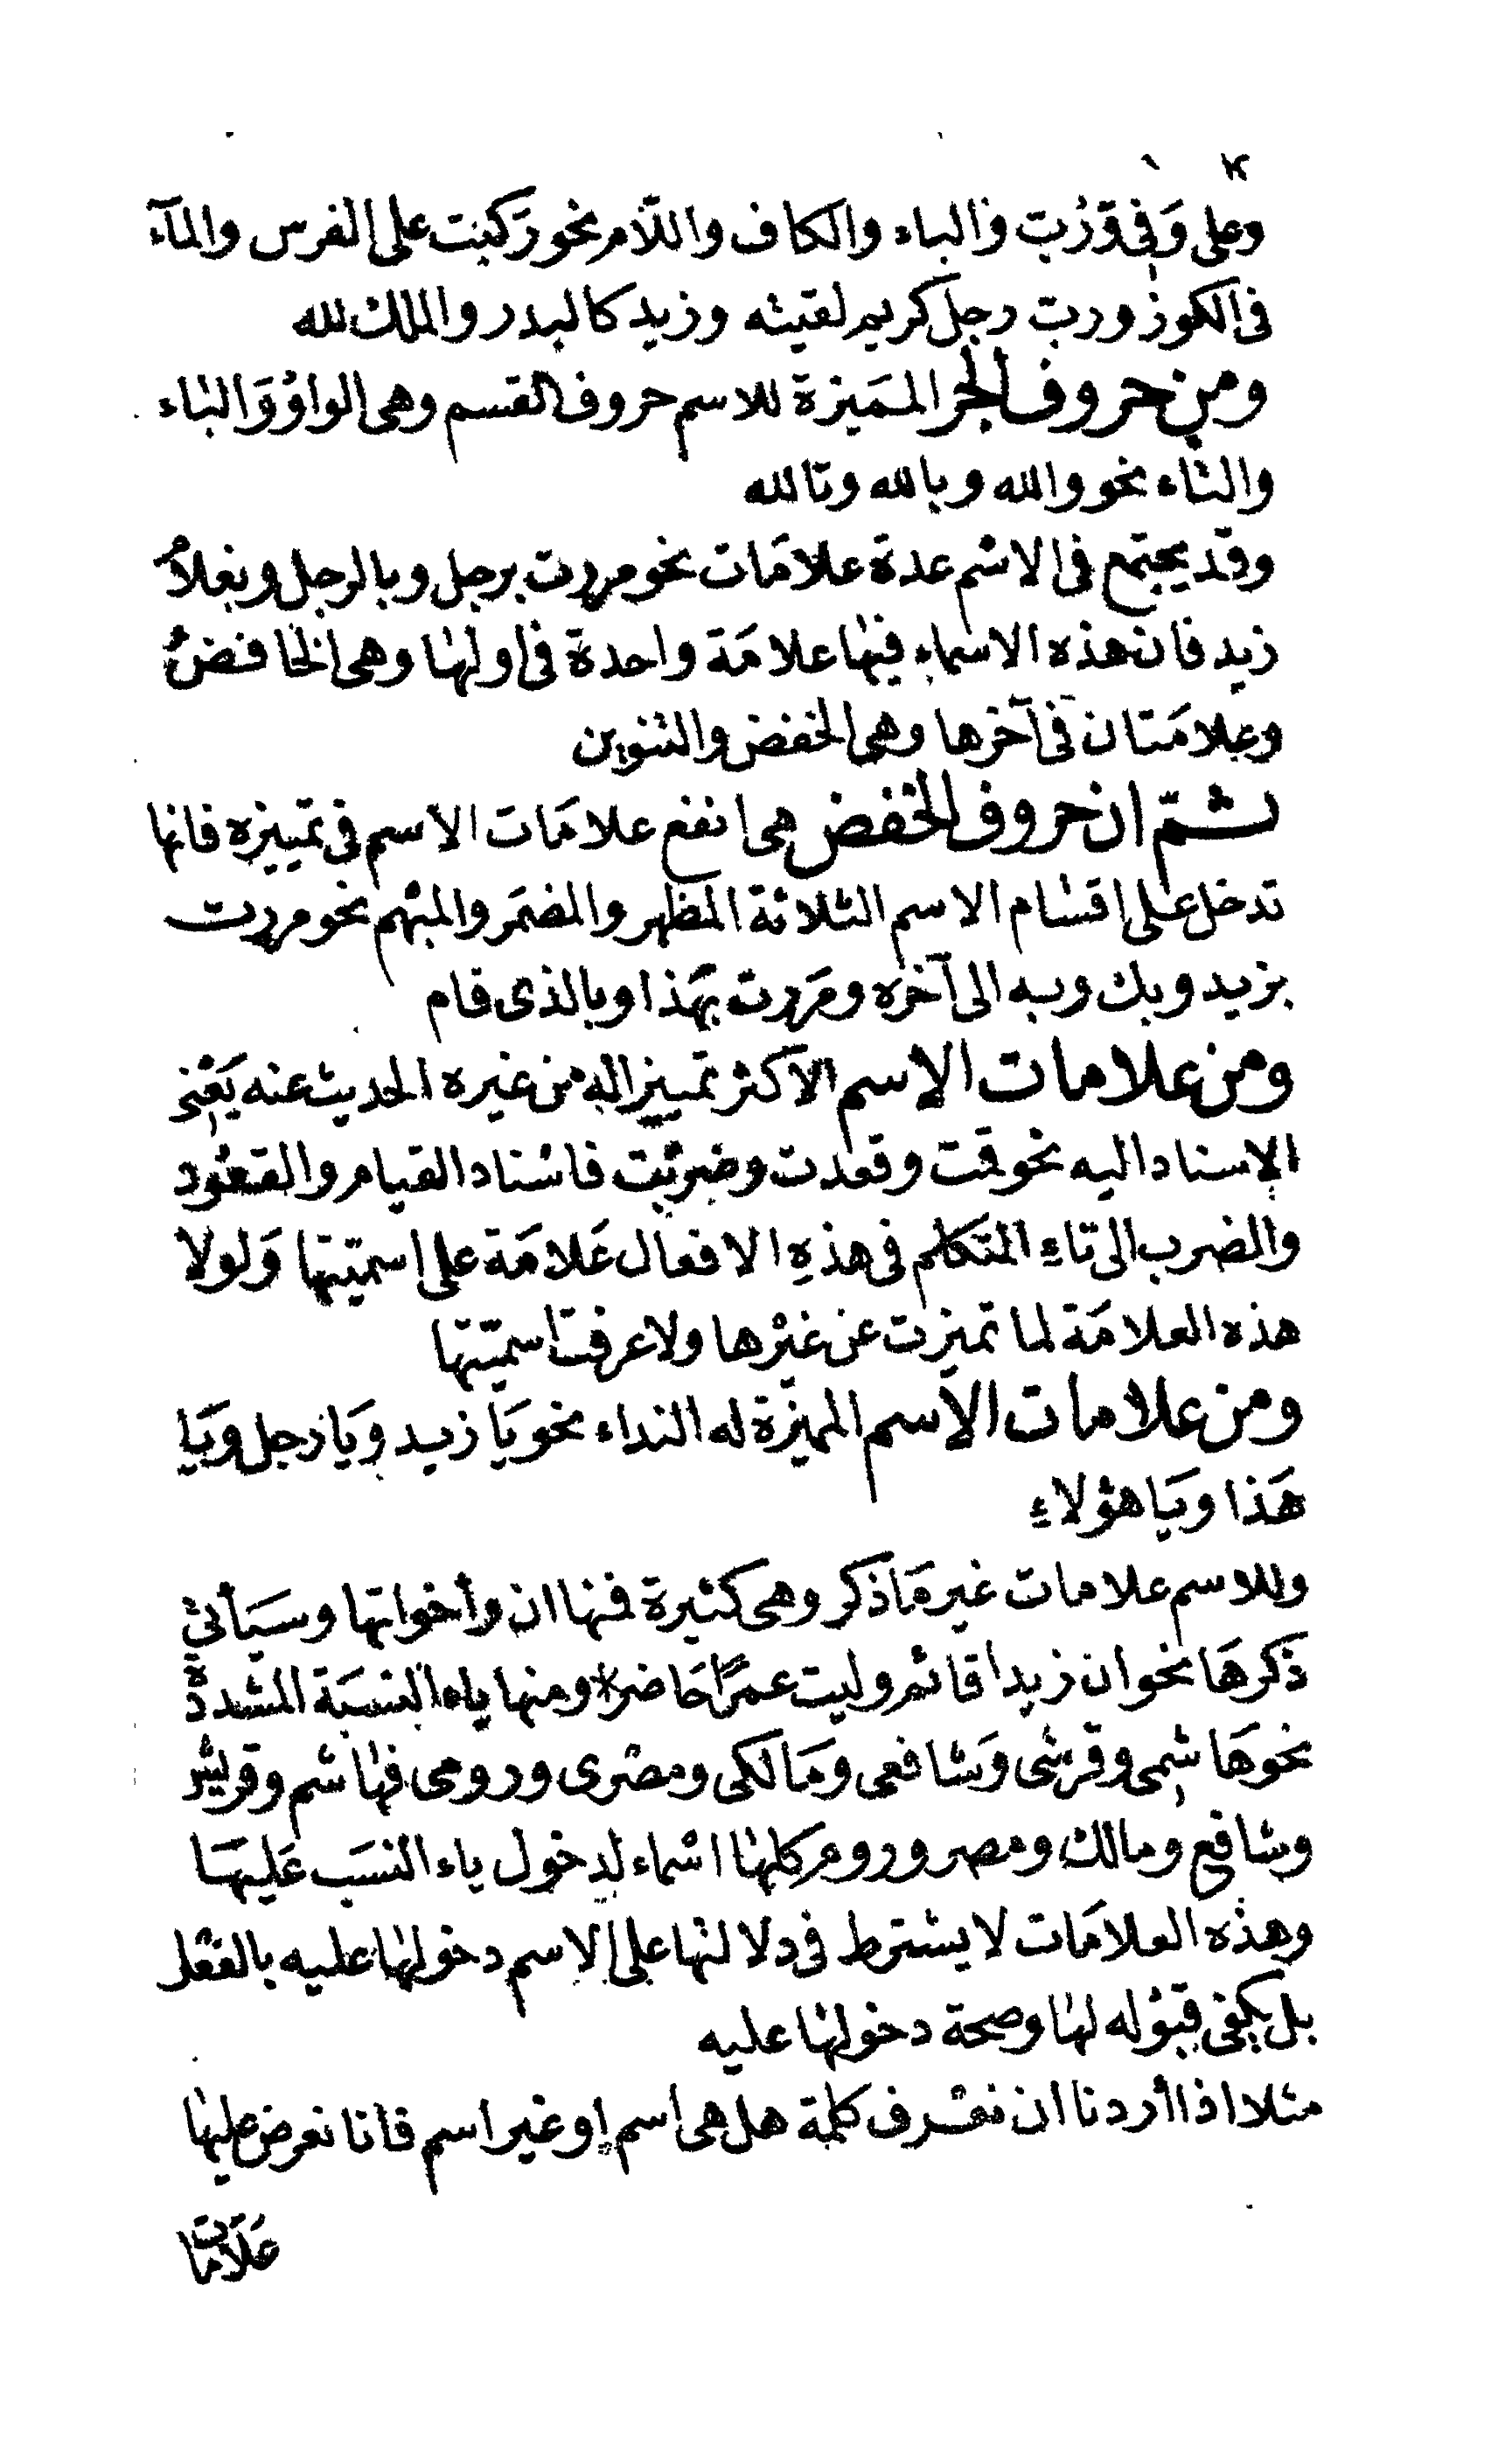 وعلى وَفى وَرُبّ والباء والكاف واللّام نحو رَكبت على الفرس والمآء
فى الكوز وربّ رجل كريم لقيته وزيد كالبدر والملك لله
ومن حروف الجر المَميزة للاسم حروف القسم وهى الواوُ وَالباء
والتاء نحو والله وبالله وتالله
وقد يجتمع فى الاسم عدة علامَات نحو مررت برجل وبالرجل وبغلام
زيد فان هذه الاسماء فيها علامَة واحدة فى اولها وهى الخافضُ
وعلامَتان فى آخرها وهى الخفض والتنوين
ثمّ ان حروف الخفض هى انفع علامَات الاسم فى تمييزه فانها
تدخل على اقسام الاسم الثلاثة المظهر والمضمَر والمبهم نحو مررت
بزيد وبك وبه الى آخره ومَررت بهَذا وبالذى قام
ومن علامات الاسم الاكثر تمييزا له من غيره الحديث عنه يَعْنى
الاسناد اليه نحو قمت وقعدت وضربْت فاسْناد القيام والقعُود
والضرب الى تاءِ المتَكلم فى هذهِ الافعال عَلامَة على اسميتها وَلولا
هذه العلامَة لما تميزت عن غيْرها ولا عرفت اسميّتها
ومن علامات الاسم المميّزة له النداء نحو يَا زيد وَيا رَجل وَيَا
هَذا وَيَا هؤلاءِ
وللاسم علامات غير مَا ذكر وهى كثيرة فمنها ان وأخواتها وسيَأتي
ذكرهَا نحو ان زيدا قائم وليت عمرًا حَاضر * ومنها ياء النسبَة المشددة
نحو هَاشمى وقرشى وَشافعى ومَالكى ومصْرى ورومى فهاشم وقريش
وشافع ومالك ومصر وروم كلها اسْماء لدخول ياء النسَب عَليهَا
وهذه العلامَات لا يشترط فى دلالتها على الاسم دخولها عليه بالفعْل
بل يكفى قبوْله لها وصحة دخولها عليه
مثلا اذا أردنا ان نعْرف كلمة هل هى اسم او غير اسم فانا نعرض عليها
عَلَامات